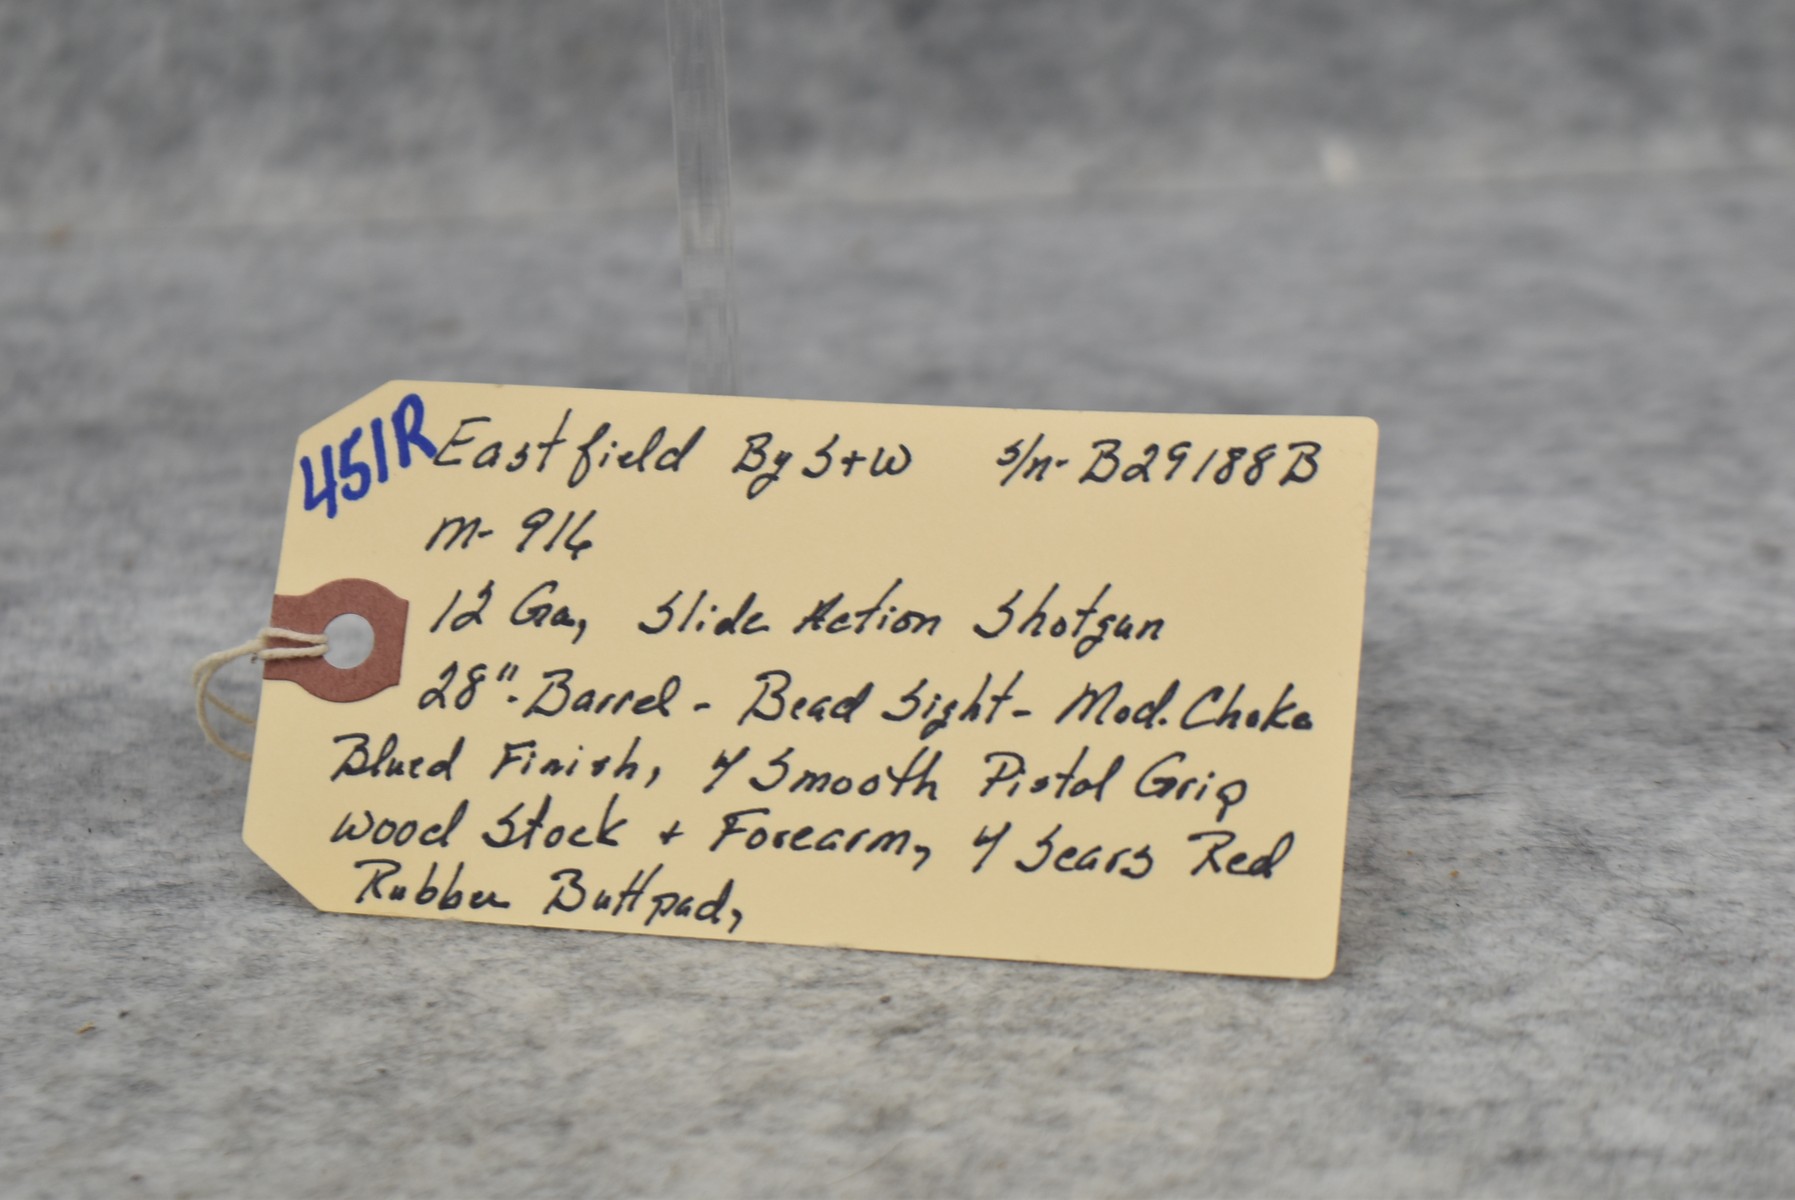 451R Eastfield By S+W s/n- B29188B
M- 916
12 Ga, Slide Action Shotgun
28"- Barrel - Bead Sight - Mod. Choke
Blued Finish, Smooth Pistol Grip
Wood Stock + Forearm, Sears Red
Rubber Buttpad,